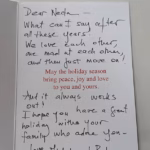 Dear Neda—
What can I say after
all these years!
We love each other,
are mad at each other,
and then just move on!
May the holiday season
bring peace, joy and love
to you and yours.
And it always works
out!
I hope you have a great
holiday with your
family who adore you—
Love